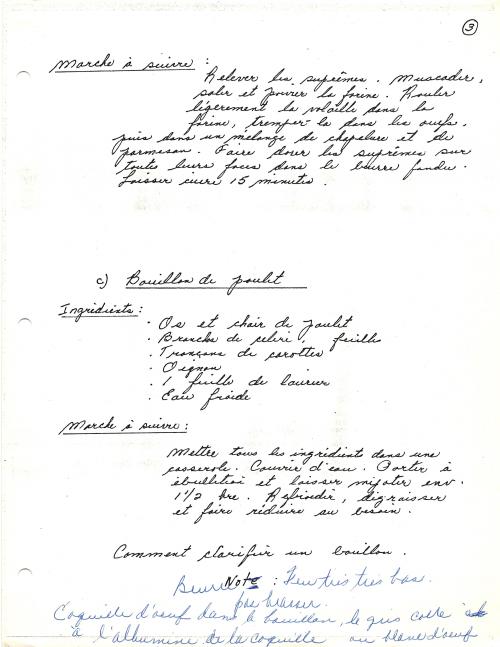 3
Marche à suivre :
Relever les suprêmes. Muscader,
saler et poivrer la farine. Rouler
légèrement la volaille dans la
farine, tremper-la dans les oeufs,
puis dans un mélange de chapelure et de
parmesan. Faire dorer les suprêmes sur
toutes leurs faces dans le beurre fondu.
Laisser cuire 15 minutes.
c) Bouillon de poulet
Ingrédients :
· Os et chair de poulet
· Branche de céleri, feuilles
· Tronçons de carottes
· Oignon
· 1 feuille de laurier
· Eau froide
Marche à suivre :
Mettre tous les ingrédients dans une
casserole. Couvrir d'eau. Porter à
ébullition et laisser mijoter env.
1 1/2 hre. Refroidir, dégraisser
et faire réduire au besoin.
Comment clarifier un bouillon.
Note : Feu très très bas.
pas brasser.
Coquille d'oeuf dans le bouillon, le gris colle
à l'albumine de la coquille ou blanc d'oeuf